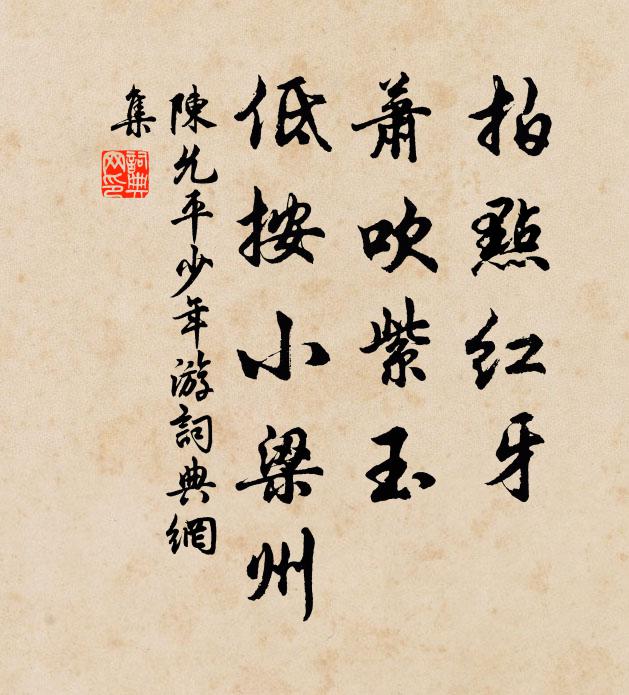 拍點紅牙
萧吹紫玉
低按小梁州
陳允平少年游詞典網
集
詞典網印